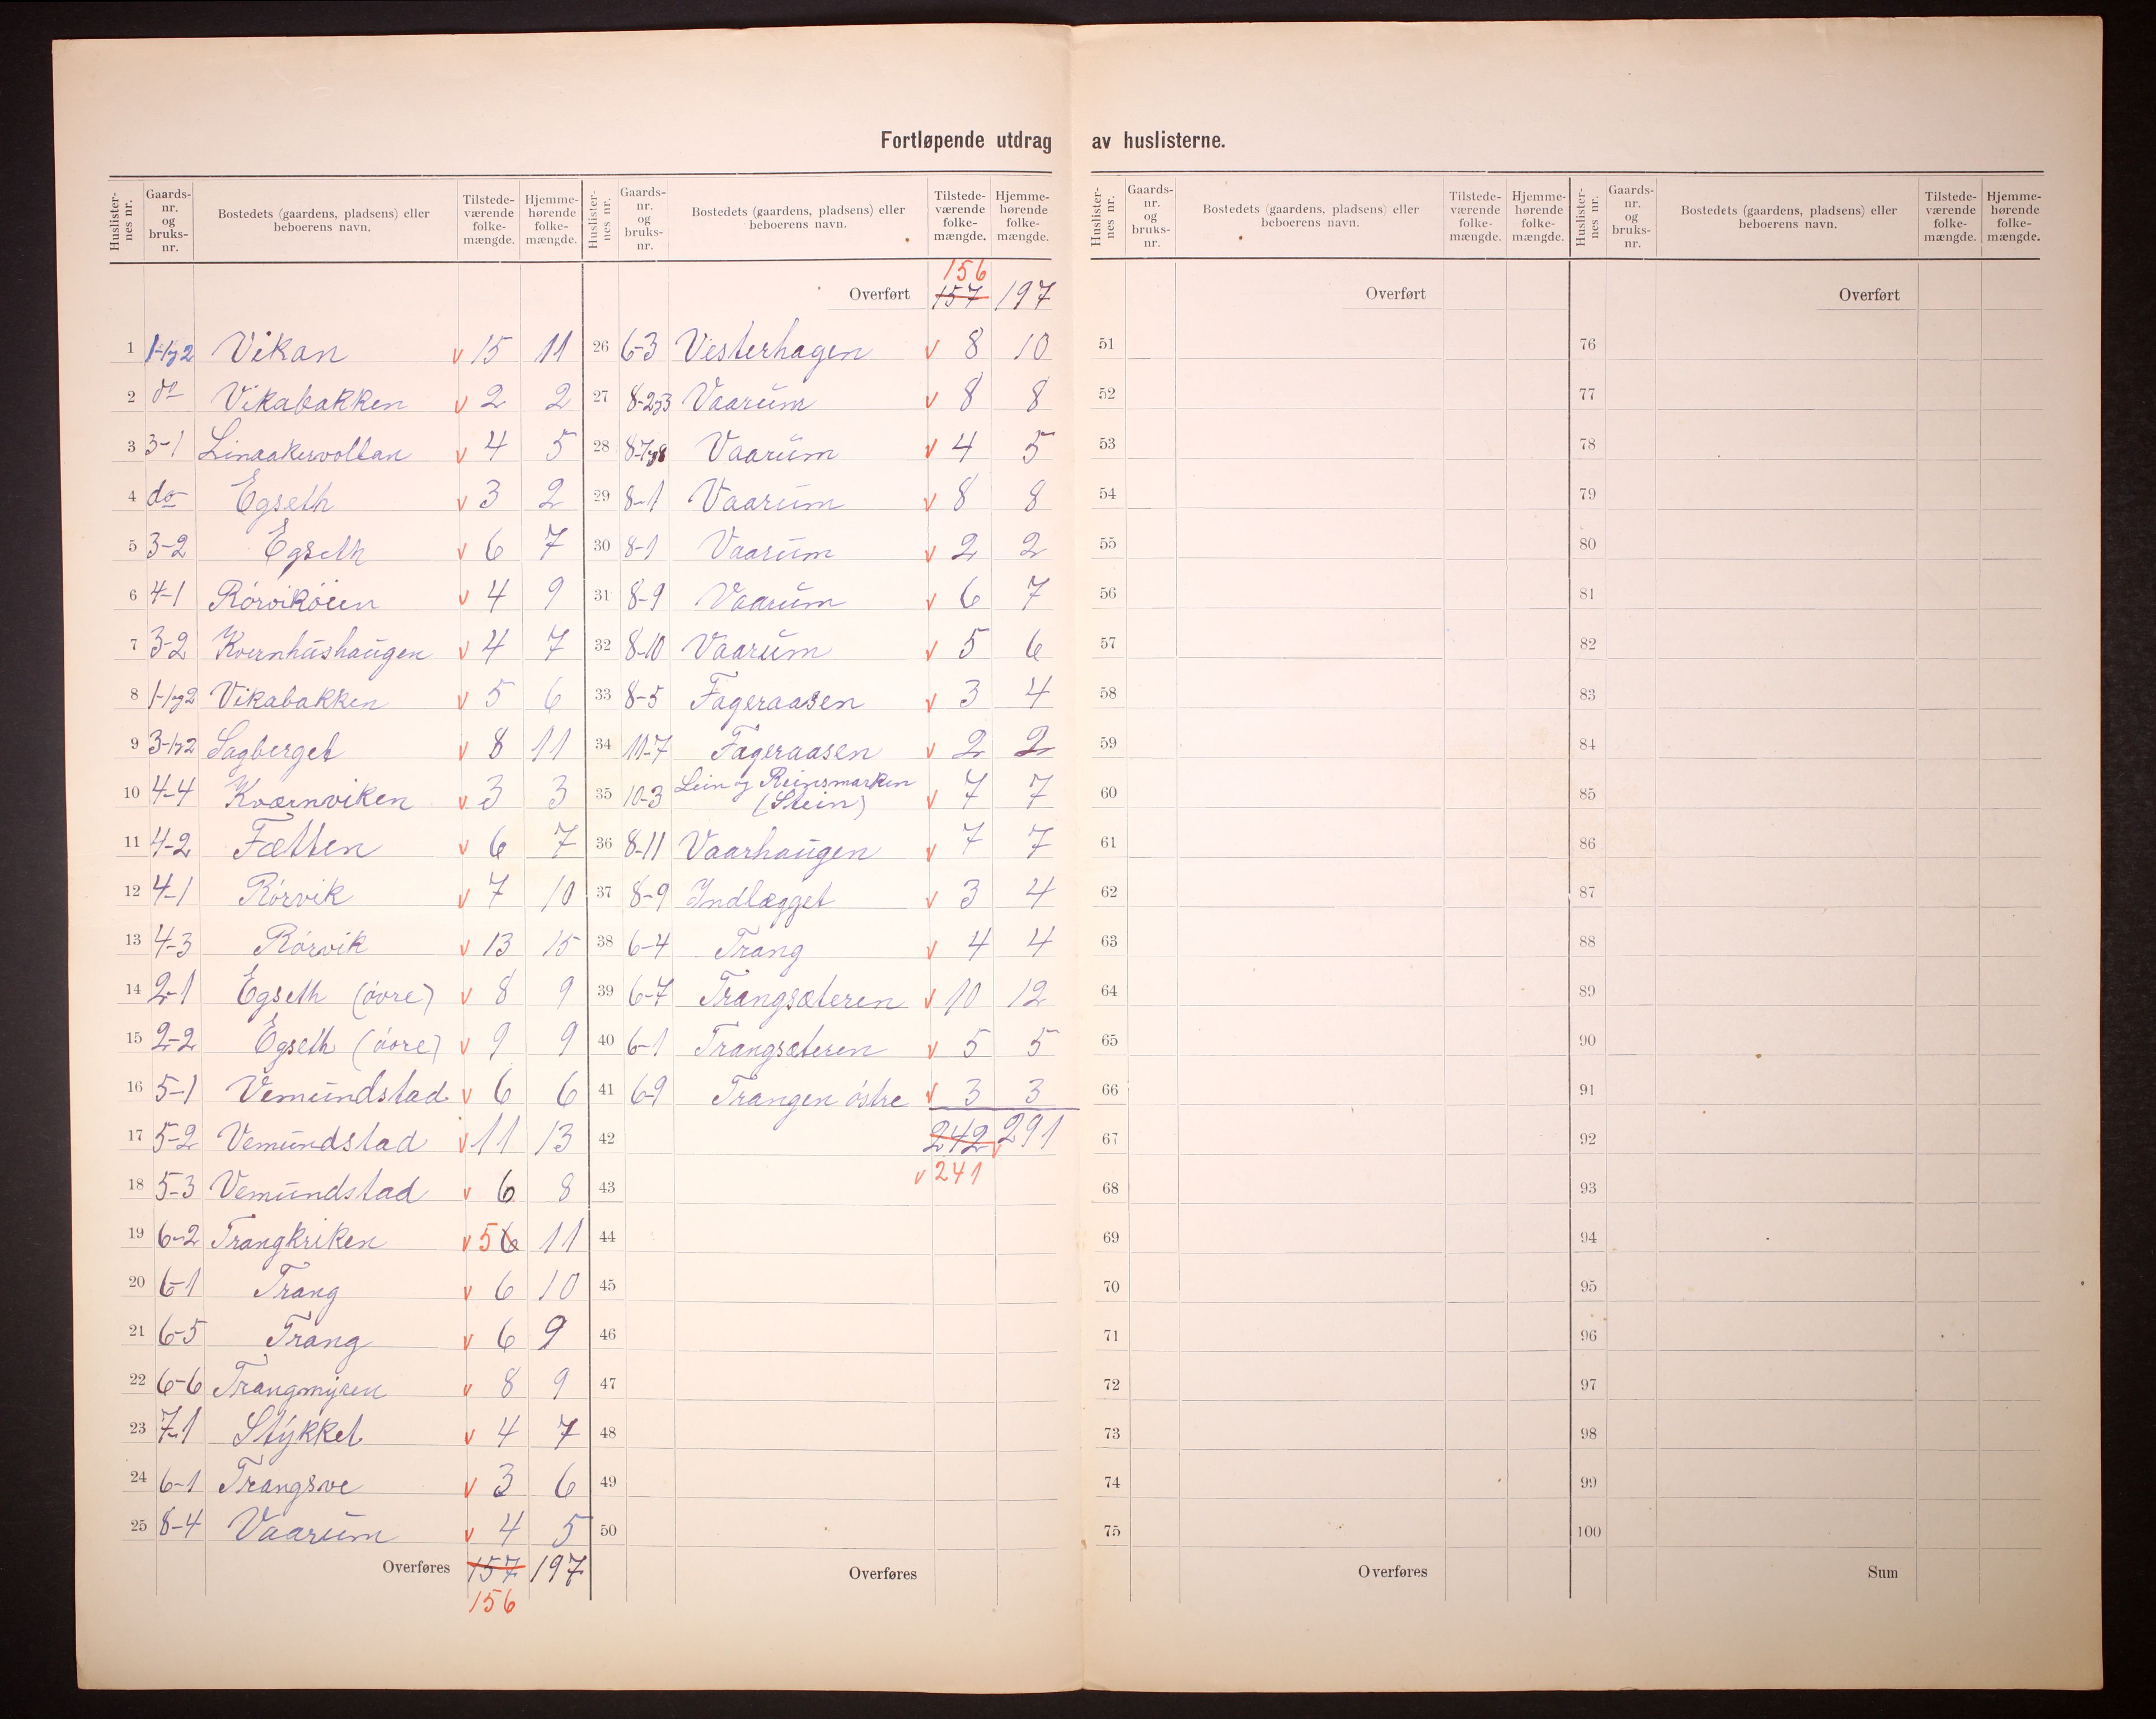 Fortløpende utdrag av huslisterne.
Huslister-nes nr. | Gaards-nr. og bruks-nr. | Bostedets (gaardens, pladsens) eller beboerens navn. | Tilstede-værende folke-mængde. | Hjemme-hørende folke-mængde.
1 1-1og2 Vikan v 15 11
2 do Vikabakken v 2 2
3 3-1 Linaakervollan v 4 5
4 do Egseth v 3 2
5 3-2 Egseth v 6 7
6 4-1 Rørvikøien v 4 9
7 3-2 Kvernhushaugen v 4 7
8 1-1og2 Vikabakken v 5 6
9 3-1og2 Sagberget v 8 11
10 4-4 Kværnviken v 3 3
11 4-2 Fætten v 6 7
12 4-1 Rørvik v 7 10
13 4-3 Rørvik v 13 15
14 2-1 Egseth (øvre) v 8 9
15 2-2 Egseth (øvre) v 9 9
16 5-1 Vemundstad v 6 6
17 5-2 Vemundstad v 11 13
18 5-3 Vemundstad v 6 8
19 6-2 Trangkriken v 5 6 11
20 6-1 Trang v 6 10
21 6-5 Trang v 6 9
22 6-6 Trangmyren v 8 9
23 7-1 Stykket v 4 7
24 6-1 Trangsve v 3 6
25 8-4 Vaarum v 4 5
Overføres 157 197
156
Huslister-nes nr. | Gaards-nr. og bruks-nr. | Bostedets (gaardens, pladsens) eller beboerens navn. | Tilstede-værende folke-mængde. | Hjemme-hørende folke-mængde.
156
Overført 157 197
26 6-3 Vesterhagen v 8 10
27 8-2og3 Vaarum v 8 8
28 8-7og8 Vaarum v 4 5
29 8-1 Vaarum v 8 8
30 8-1 Vaarum v 2 2
31 8-9 Vaarum v 6 7
32 8-10 Vaarum v 5 6
33 8-5 Fageraasen v 3 4
34 11-7 Fageraasen v 2 2
35 10-3 Lein og Reinsmarken (Stein) v 7 7
36 8-11 Vaarhaugen v 7 7
37 8-9 Indlægget v 3 4
38 6-4 Trang v 4 4
39 6-7 Trangsæteren v 10 12
40 6-1 Trangsæteren v 5 5
41 6-9 Trangen østre v 3 3
42 242 v 291
v 241
43
44
45
46
47
48
49
50
Overføres
Huslister-nes nr. | Gaards-nr. og bruks-nr. | Bostedets (gaardens, pladsens) eller beboerens navn. | Tilstede-værende folke-mængde. | Hjemme-hørende folke-mængde.
Overført
51
52
53
54
55
56
57
58
59
60
61
62
63
64
65
66
67
68
69
70
71
72
73
74
75
Overføres
Huslister-nes nr. | Gaards-nr. og bruks-nr. | Bostedets (gaardens, pladsens) eller beboerens navn. | Tilstede-værende folke-mængde. | Hjemme-hørende folke-mængde.
Overført
76
77
78
79
80
81
82
83
84
85
86
87
88
89
90
91
92
93
94
95
96
97
98
99
100
Sum